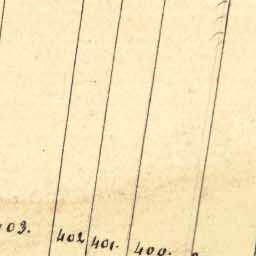 403.
402
401.
400.